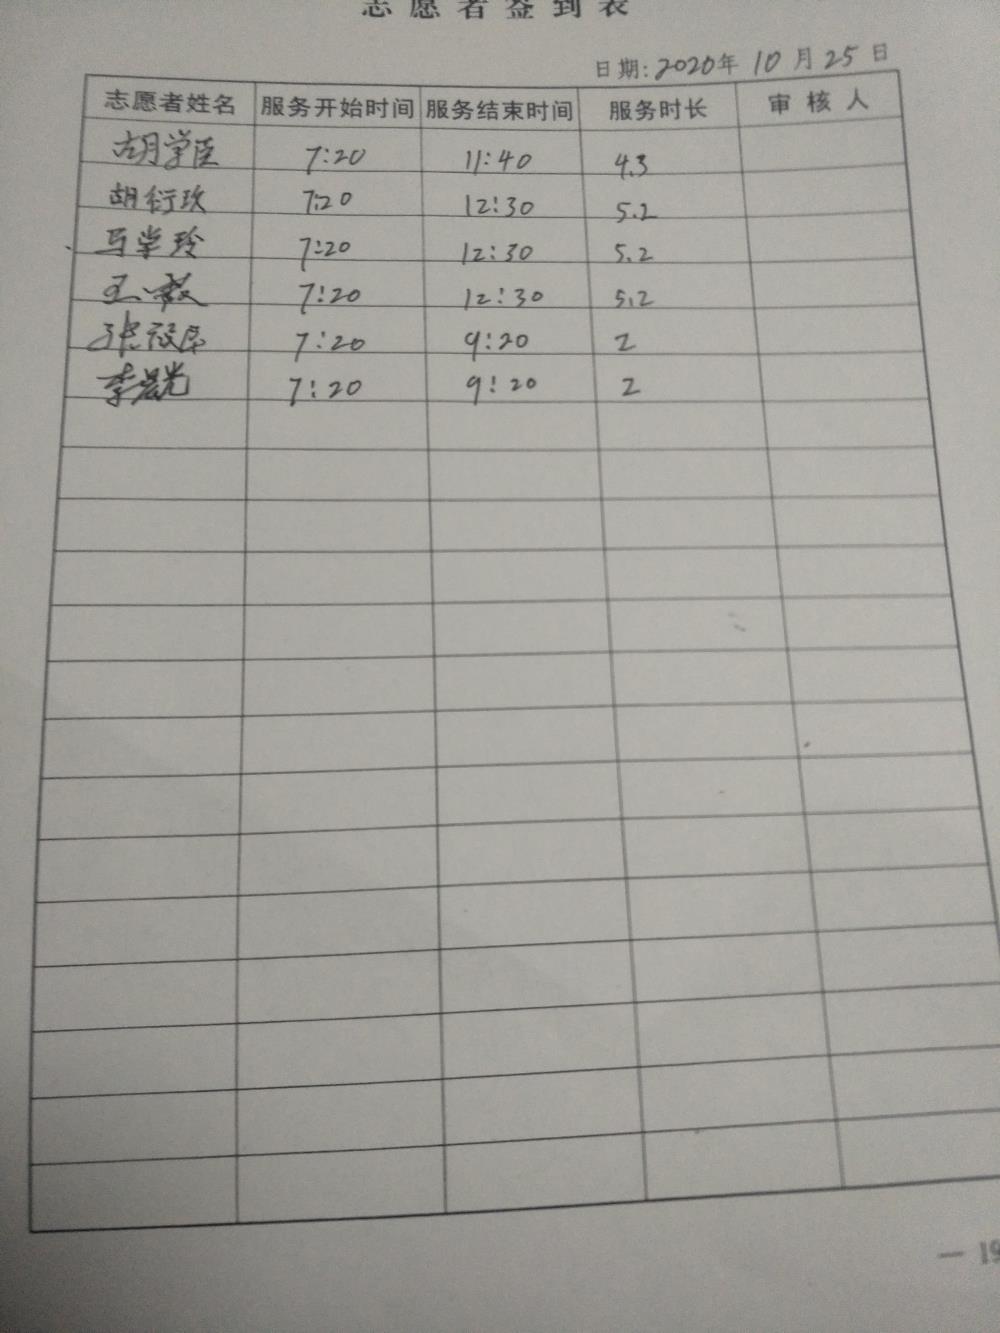 志愿者签到表
日期:2020年10月25日
志愿者姓名 服务开始时间 服务结束时间 服务时长 审核人
胡学臣 7:20 11:40 4.3
胡衍玖 7:20 12:30 5.2
马学玲 7:20 12:30 5.2
7:20 12:30 5.2
7:20 9:20 2
李晨光 7:20 9:20 2